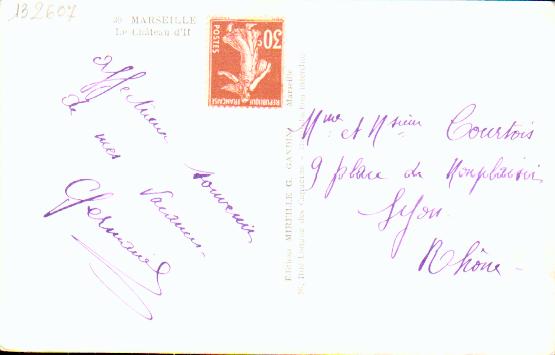 132607
39 MARSEILLE
Le Château d'If
30c
POSTES
REPUBLIQUE FRANÇAISE
affectueux souvenir
de mes vacances
Germaine
Edition MIREILLE G. GANDINI Marseille
Mme et Msieur Courtois
9 place de Monplaisir
Lyon
Rhône